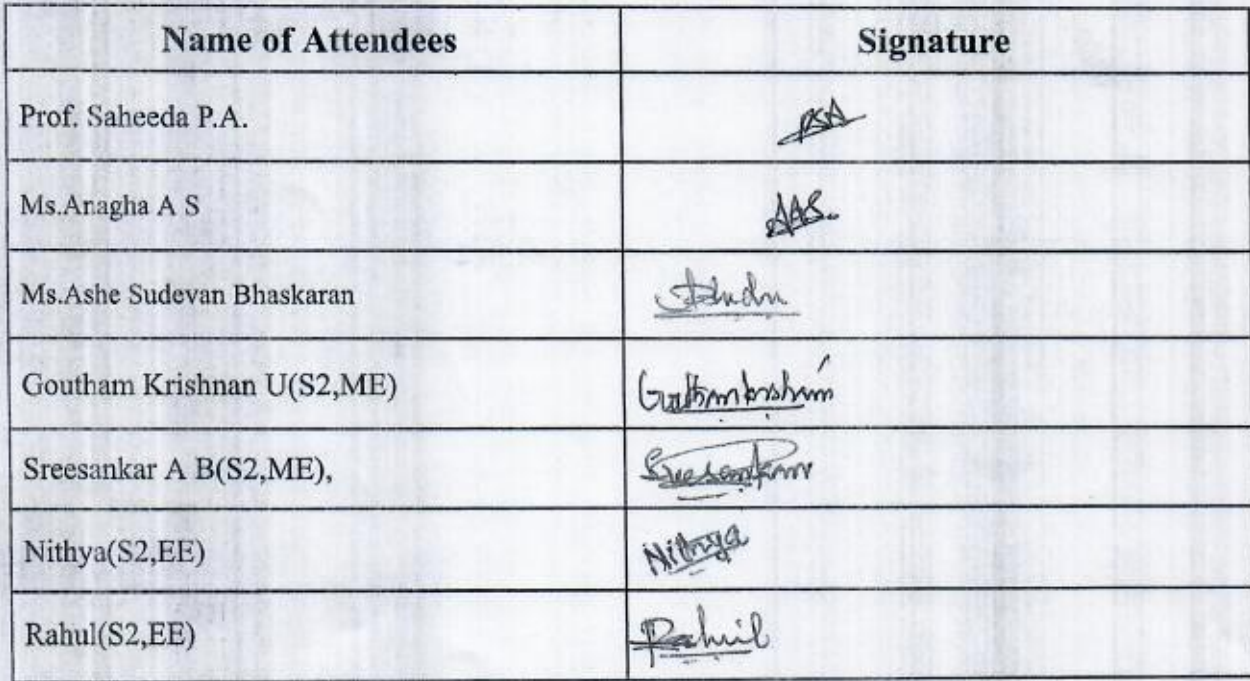 Name of Attendees Signature
Prof. Saheeda P.A. PSA
Ms.Anagha A S AAS.
Ms.Ashe Sudevan Bhaskaran
Goutham Krishnan U(S2,ME)
Sreesankar A B(S2,ME), Sreesankar
Nithya(S2,EE) Nithya
Rahul(S2,EE) Rahul